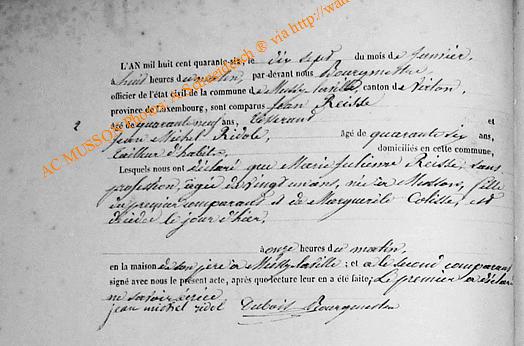 L'AN mil huit cent quarante-six, le dix sept du mois de janvier,
à huit heures du matin, par devant nous Bourgmestre
officier de l'état civil de la commune de Mussy-la-ville, canton de Virton,
province de Luxembourg, sont comparus Jean Reisse
âgé de quarante neuf ans, et
2
Jean Michel Ridole âgé de quarante six ans,
tailleur d'habits, domiciliés en cette commune,
Lesquels nous ont déclaré que Marie Julienne Reisse, sans
profession, âgée de vingt un ans, née à Musson, fille
du premier comparant et de Marguerite est
décédée le jour d'hier,
à onze heures du matin,
en la maison de son père à Mussy-la-ville; et a le second comparant
signé avec nous le présent acte, après que lecture leur en a été faite; Le premier a déclaré
ne savoir écrire
jean michel ridol Dubois Bourgmestre
AC MUSSON Photos A. Schneidesch ® via http://www